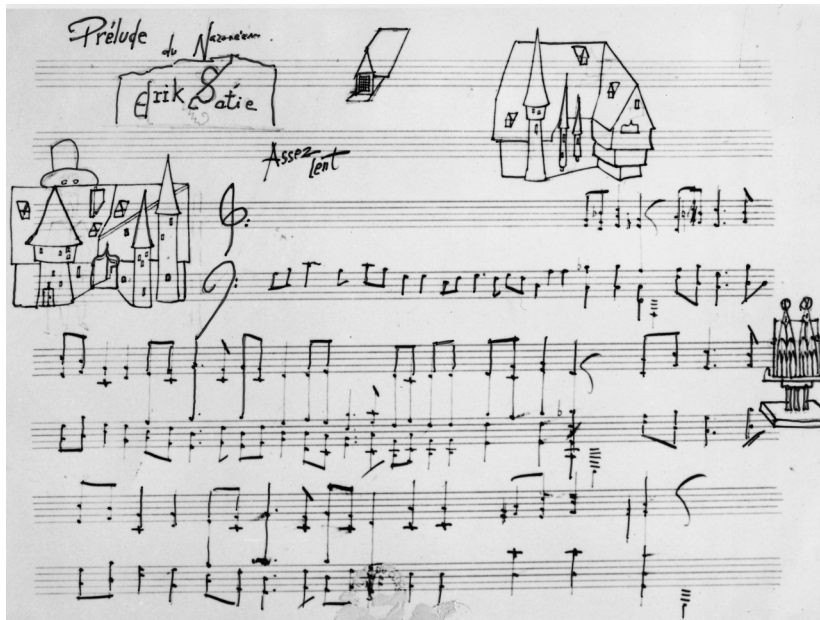 Prélude du Nazaréen
Erik Satie
Assez lent